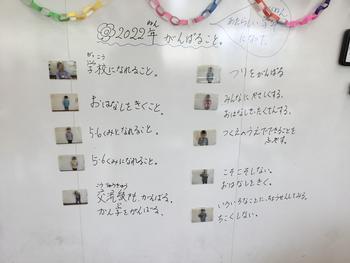 2022年ねん がんばること。
あたらしい
になって
学校がっこうになれること。
おはなしをきくこと。
5・6くみとなれること。
5・6くみになれること。
交流級こうりゅうきゅうも、がんばる。
かん字をがんばる。
つりをがんばる
みんなにやさしくする。
おはなしをたくさんする。
つくえのうえでできることを
ふやす。
こそこそしない。
おはなしきく。
いろいろなことに、ちょうせんしてみる。
ちこくしない。